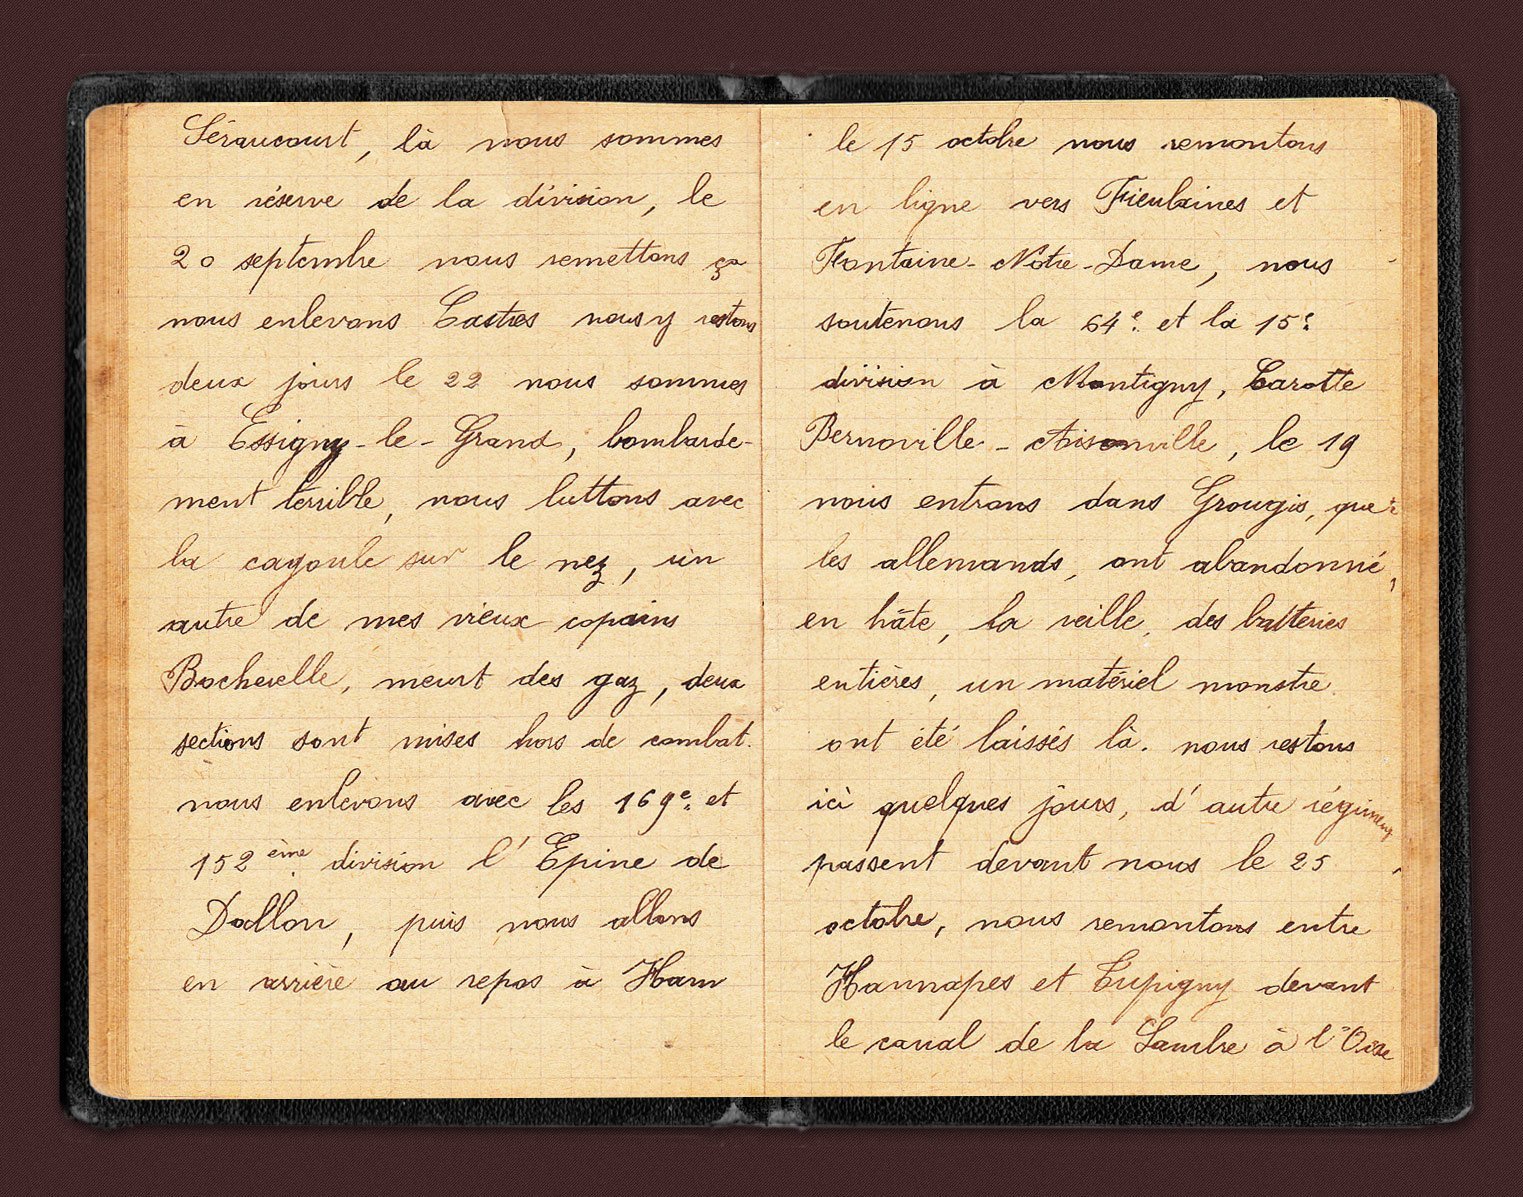 Séraucourt, là nous sommes
en réserve de la division, le
20 septembre nous remettons ça
nous enlevons Castres nous y restons
deux jours le 22 nous sommes
à Essigny-le-Grand, bombarde-
ment terrible, nous luttons avec
la cagoule sur le nez, un
autre de mes vieux copains
Bocherelle, meurt des gaz, deux
sections sont mises hors de combat.
nous enlevons avec les 169e. et
152ème. division l'Epine de
Dallon, puis nous allons
en arrière au repos à Ham
le 15 octobre nous remontons
en ligne vers Fieulaines et
Fontaine-Notre-Dame, nous
soutenons la 64e. et la 15e.
division à Montigny, Carotte
Bernoville - Aisonville, le 19
nous entrons dans Grougis, que
les allemands, ont abandonné,
en hâte, la veille, des batteries
entières, un matériel monstre
ont été laissés là. nous restons
ici quelques jours, d'autre régiments
passent devant nous le 25
octobre, nous remontons entre
Hannapes et Tupigny devant
le canal de la Sambre à l'Oise